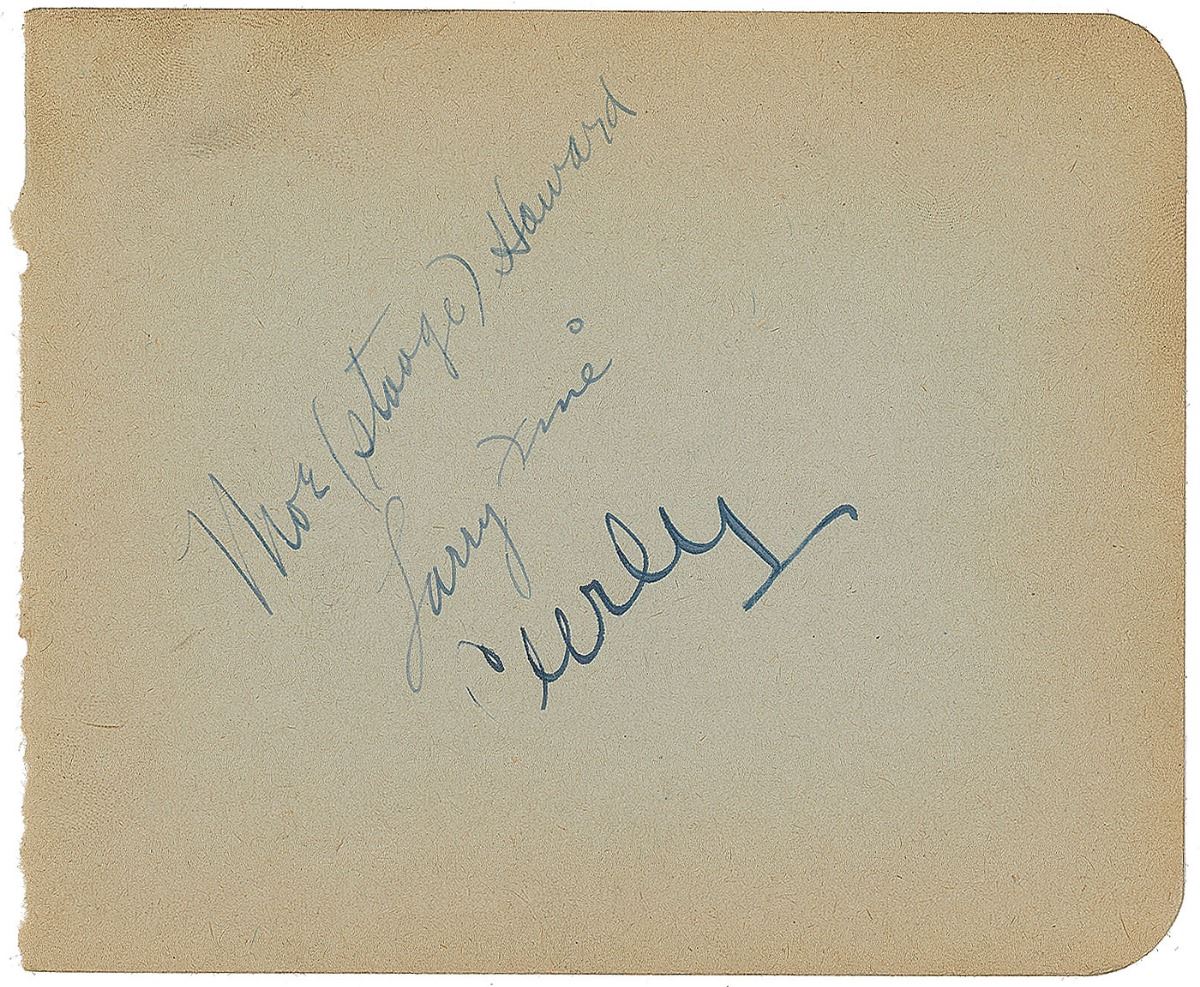 Moe (stooge) Howard
Larry Fine
Curly